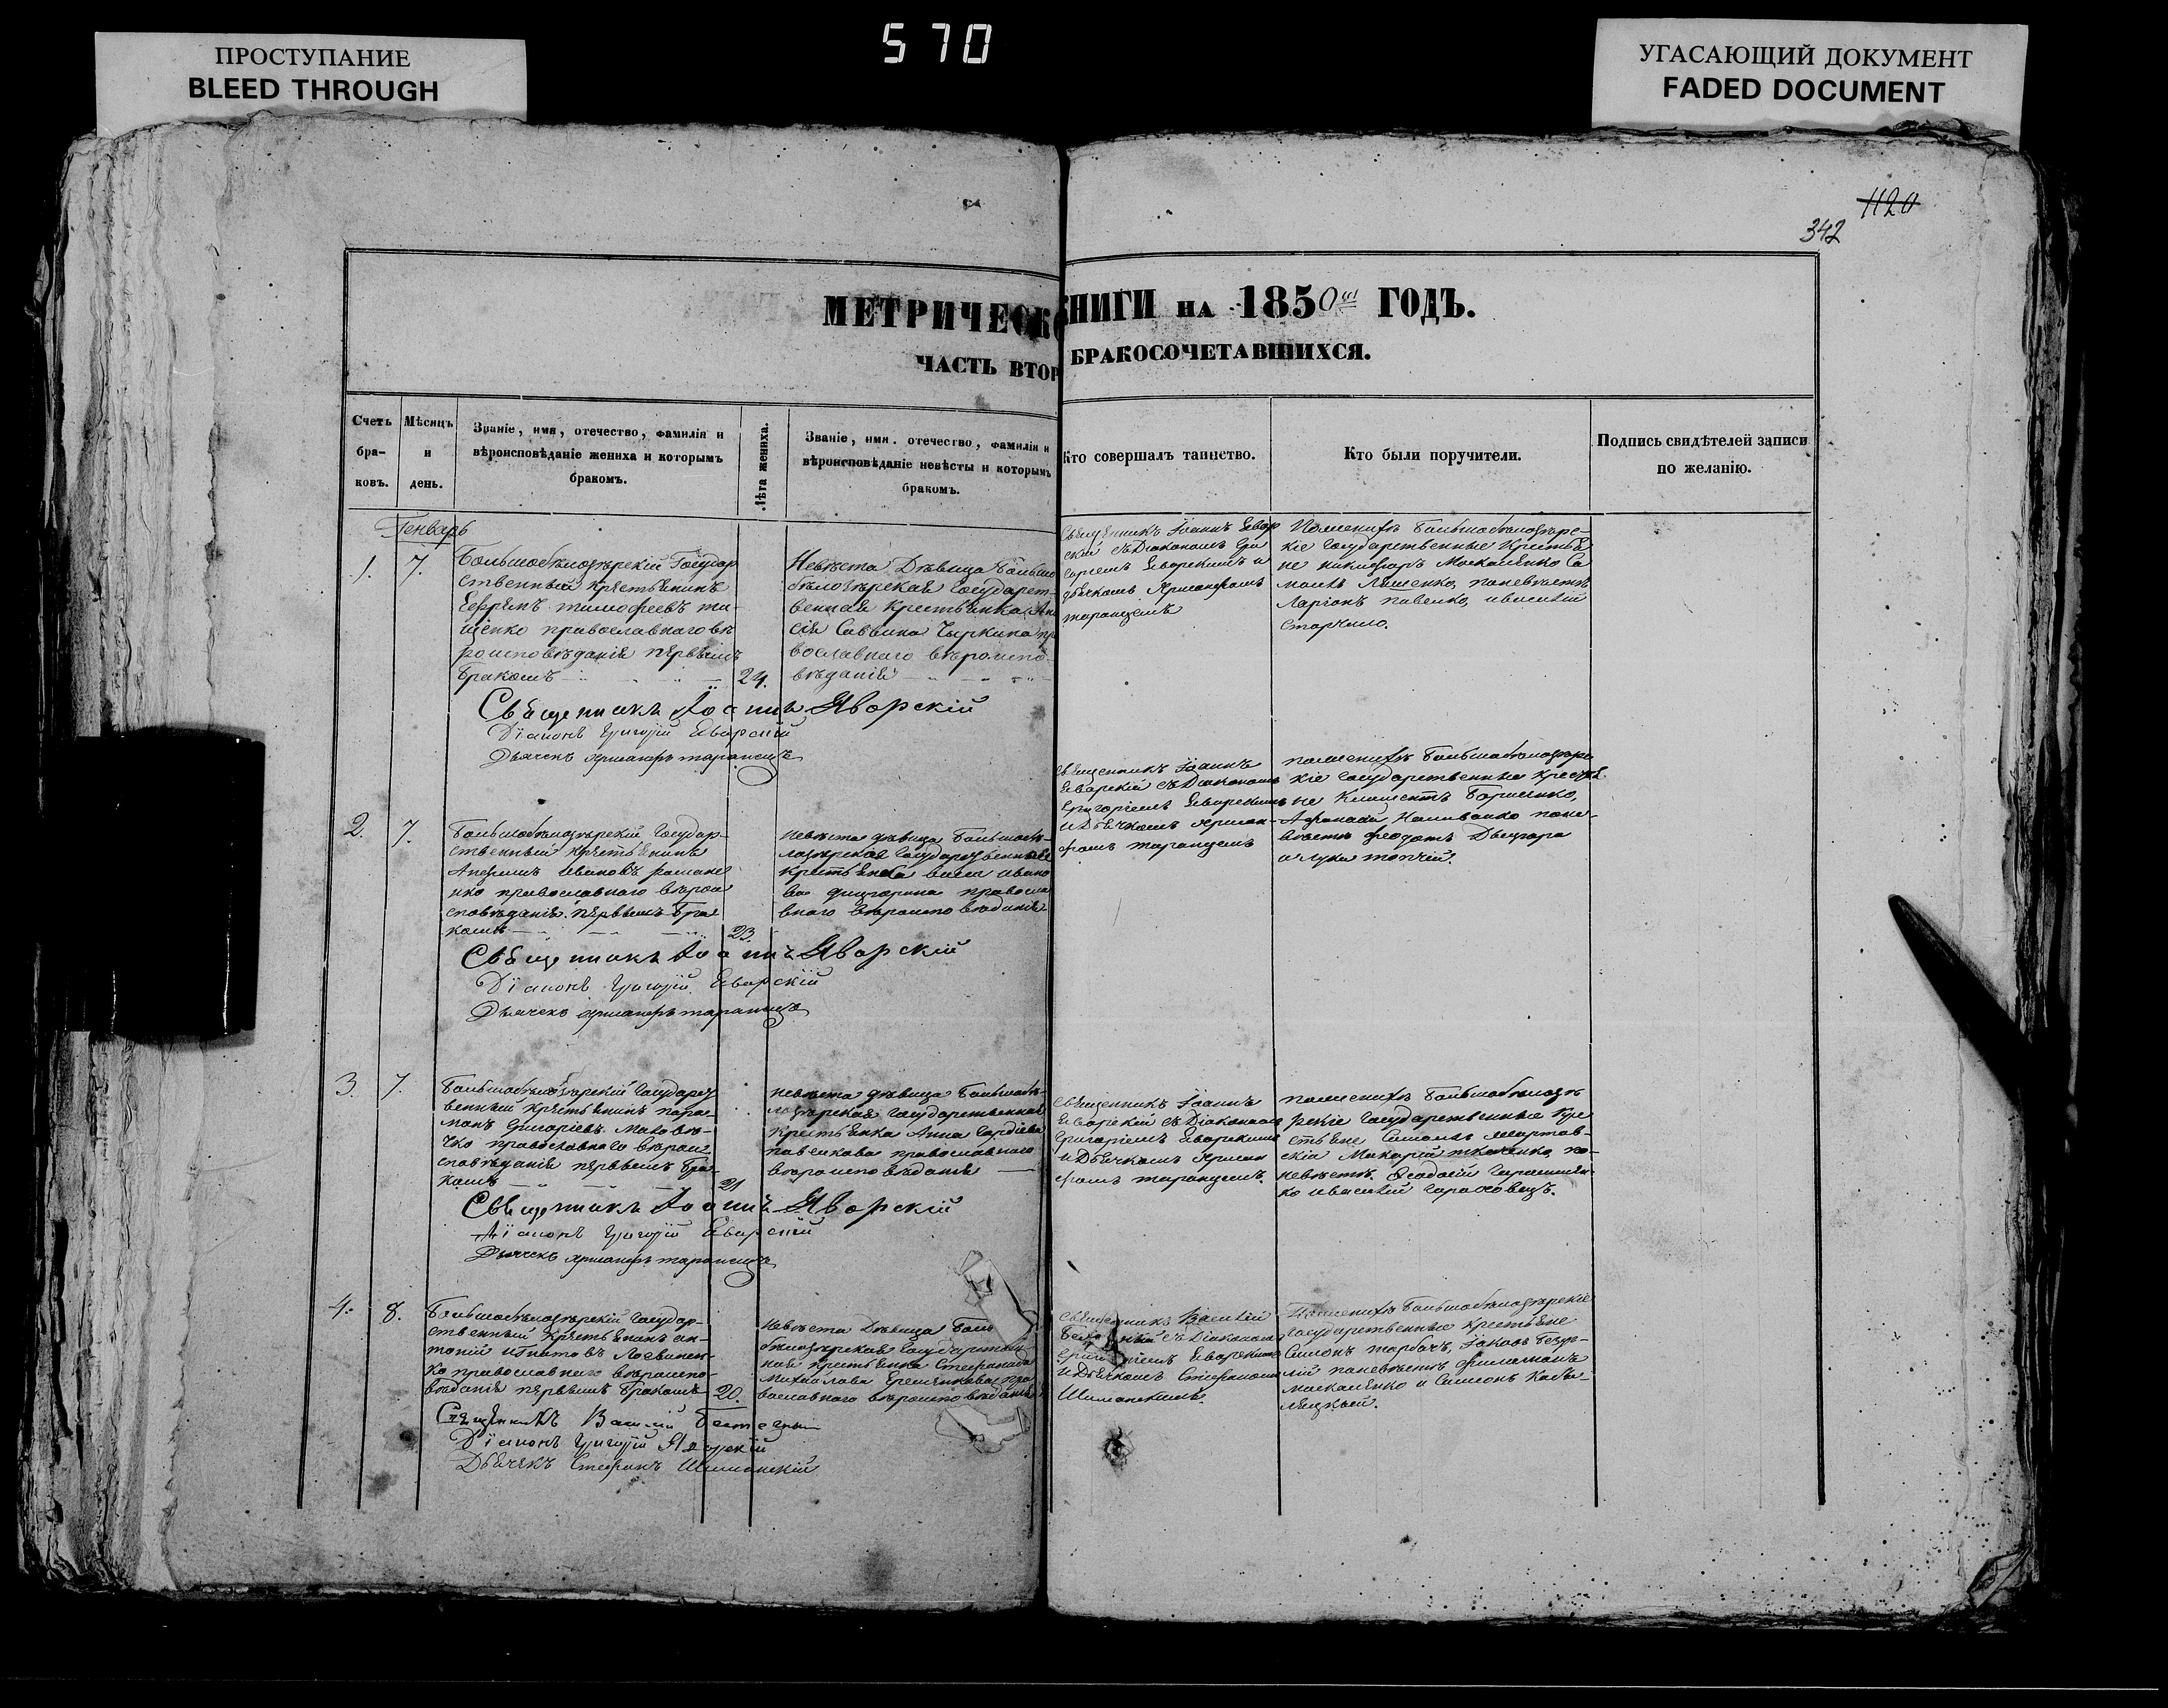 570
ПРОСТУПАНИЕ
BLEED THROUGH
УГАСАЮЩИЙ ДОКУМЕНТ
FADED DOCUMENT
1120
342
МЕТРИЧЕСКО КНИГИ НА 1850 ГОДЪ.
ЧАСТЬ ВТОР БРАКОСОЧЕТАВШИХСЯ.
Счетъ
бра-
ковъ.
Мѣсяцъ
и
день.
Званіе, имя, отечество, фамилія и
вѣроисповѣданіе жениха и которымъ
бракомъ.
Лѣта жениха.
Званіе, имя. отечество, фамилія и
вѣроисповѣданіе невѣсты и которымъ
бракомъ.
Кто совершалъ таинство.
Кто были поручители.
Подпись свидѣтелей записи
по желанію.
Генварь
1.
7.
Большобѣлозѣрскій Государ
ственный крестьянинъ
Ефремъ тимофеевъ ти-
щенко православнаго вѣ
роисповѣданія первымъ
бракомъ
24.
Невѣста Дѣвица большо
бѣлозѣрская Государст-
венная крестьянка
Саввина Чыркина пр
вославнаго вѣроиспо-
вѣданія
Священникъ Іоаннъ Явор
скій съ Діакономъ Гри
горіемъ Яворскимъ и
дьячкомъ
таранцемъ
По женихѣ большобѣлозѣрс-
кіе государственные крестья
не никифоръ Москаленко Са
моилъ Ляшенко, по невѣстѣ
Ларіонъ павленко, ивасилій
Старчило.
Священникъ Іоаннъ Яворскій
Діаконъ Григорій Яворскій
Дьячекъ таранецъ
2.
7.
Большобѣлозѣрскій государ-
ственный крестьянинъ
Ивановъ рамане
нко православнаго вѣрои
сповѣданія первымъ бра
комъ
23.
невѣста дѣвица большобѣ-
лозѣрская Государственная
крестьянка ивано
ва правосла
внаго вѣроисповѣданія
священникъ Іоаннъ
Яворскій съ Діакономъ
Григоріемъ Яворскимъ
и Дьячкомъ
таранцемъ
по женихѣ большобѣлозѣрс
кіе государственные крестья
не Климентъ Борисенко,
Афанасій Наливайко по не-
вѣстѣ Феодотъ
Священникъ Іоаннъ Яворскій
Діаконъ Григорій Яворскій
Дьячекъ таранецъ
3.
7.
Большобѣлозѣрскій государст
венный крестьянинъ
Григоріевъ
православнаго вѣрои
сповѣданія первымъ бра-
комъ
21
невѣста дѣвица большобѣ-
лозѣрская государственная
крестьянка Анна Гордіева
павленкова православнаго
вѣроисповѣданія
священникъ Іоаннъ
Яворскій съ Діакономъ
Григоріемъ Яворскимъ
и Дьячкомъ
таранцемъ.
по женихѣ большобѣлозѣ
рскіе государственные кре
стьяне
Макарій ткаченко по
невѣстѣ
ко ивасилій
Священникъ Іоаннъ Яворскій
Діаконъ Григорій Яворскій
Дьячекъ таранецъ
4.
8.
Большобѣлозѣрскій государ-
ственный крестьянинъ ан-
тоній игнатовъ
ко православнаго вѣроиспо-
вѣданія первымъ бракомъ
20.
невѣста Дѣвица Боль
бѣлозѣрская Государствен
ная крестьянка Стефанида
Михайлова пра
вославнаго вѣроисповѣданія
священникъ Василій
съ Діакономъ
Яворскимъ
и Дьячкомъ Стефаномъ
Шиманскимъ.
По женихѣ большобѣлозѣрскіе
государственные крестьяне
Симонъ Іаковъ
по невѣстѣ Филимонъ
москаленко и Симонъ
Священникъ Василій
Діаконъ Григорій Яворскій
Дьячекъ Стефанъ Шиманскій